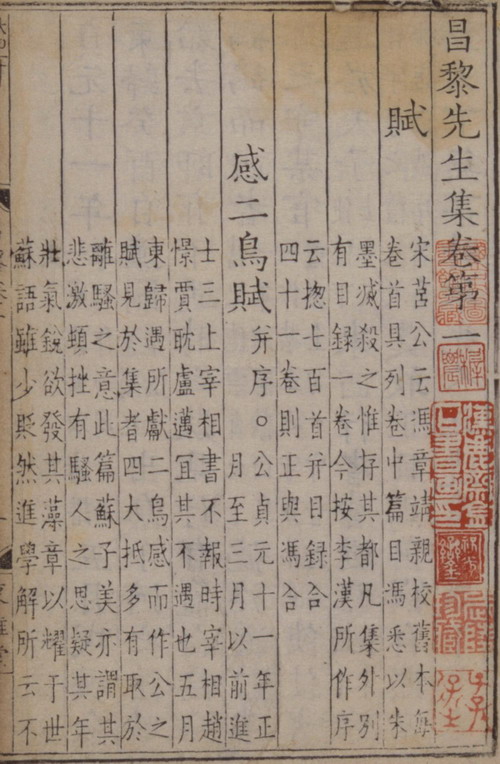 昌黎先生集卷第一
賦
宋莒公云馮章靖親校舊本每
卷首具列卷中篇目馮悉以朱
墨滅殺之惟存其都凡集外別
有目録一卷今按李漢所作序
云揔七百首并目録合
四十一卷則正與馮合
感二鳥賦
并序。公貞元十一年正
月至三月以前進
士三上宰相書不報時宰相趙
憬賈耽盧邁冝其不遇也五月
東歸遇所獻二鳥感而作公之
賦見於集者四大抵多有取於
離騷之意此篇蘇子美亦謂其
悲激頓挫有騷人之思疑其年
壯氣鋭欲發其藻章以耀于世
蘇語雖少貶然進學解所云不